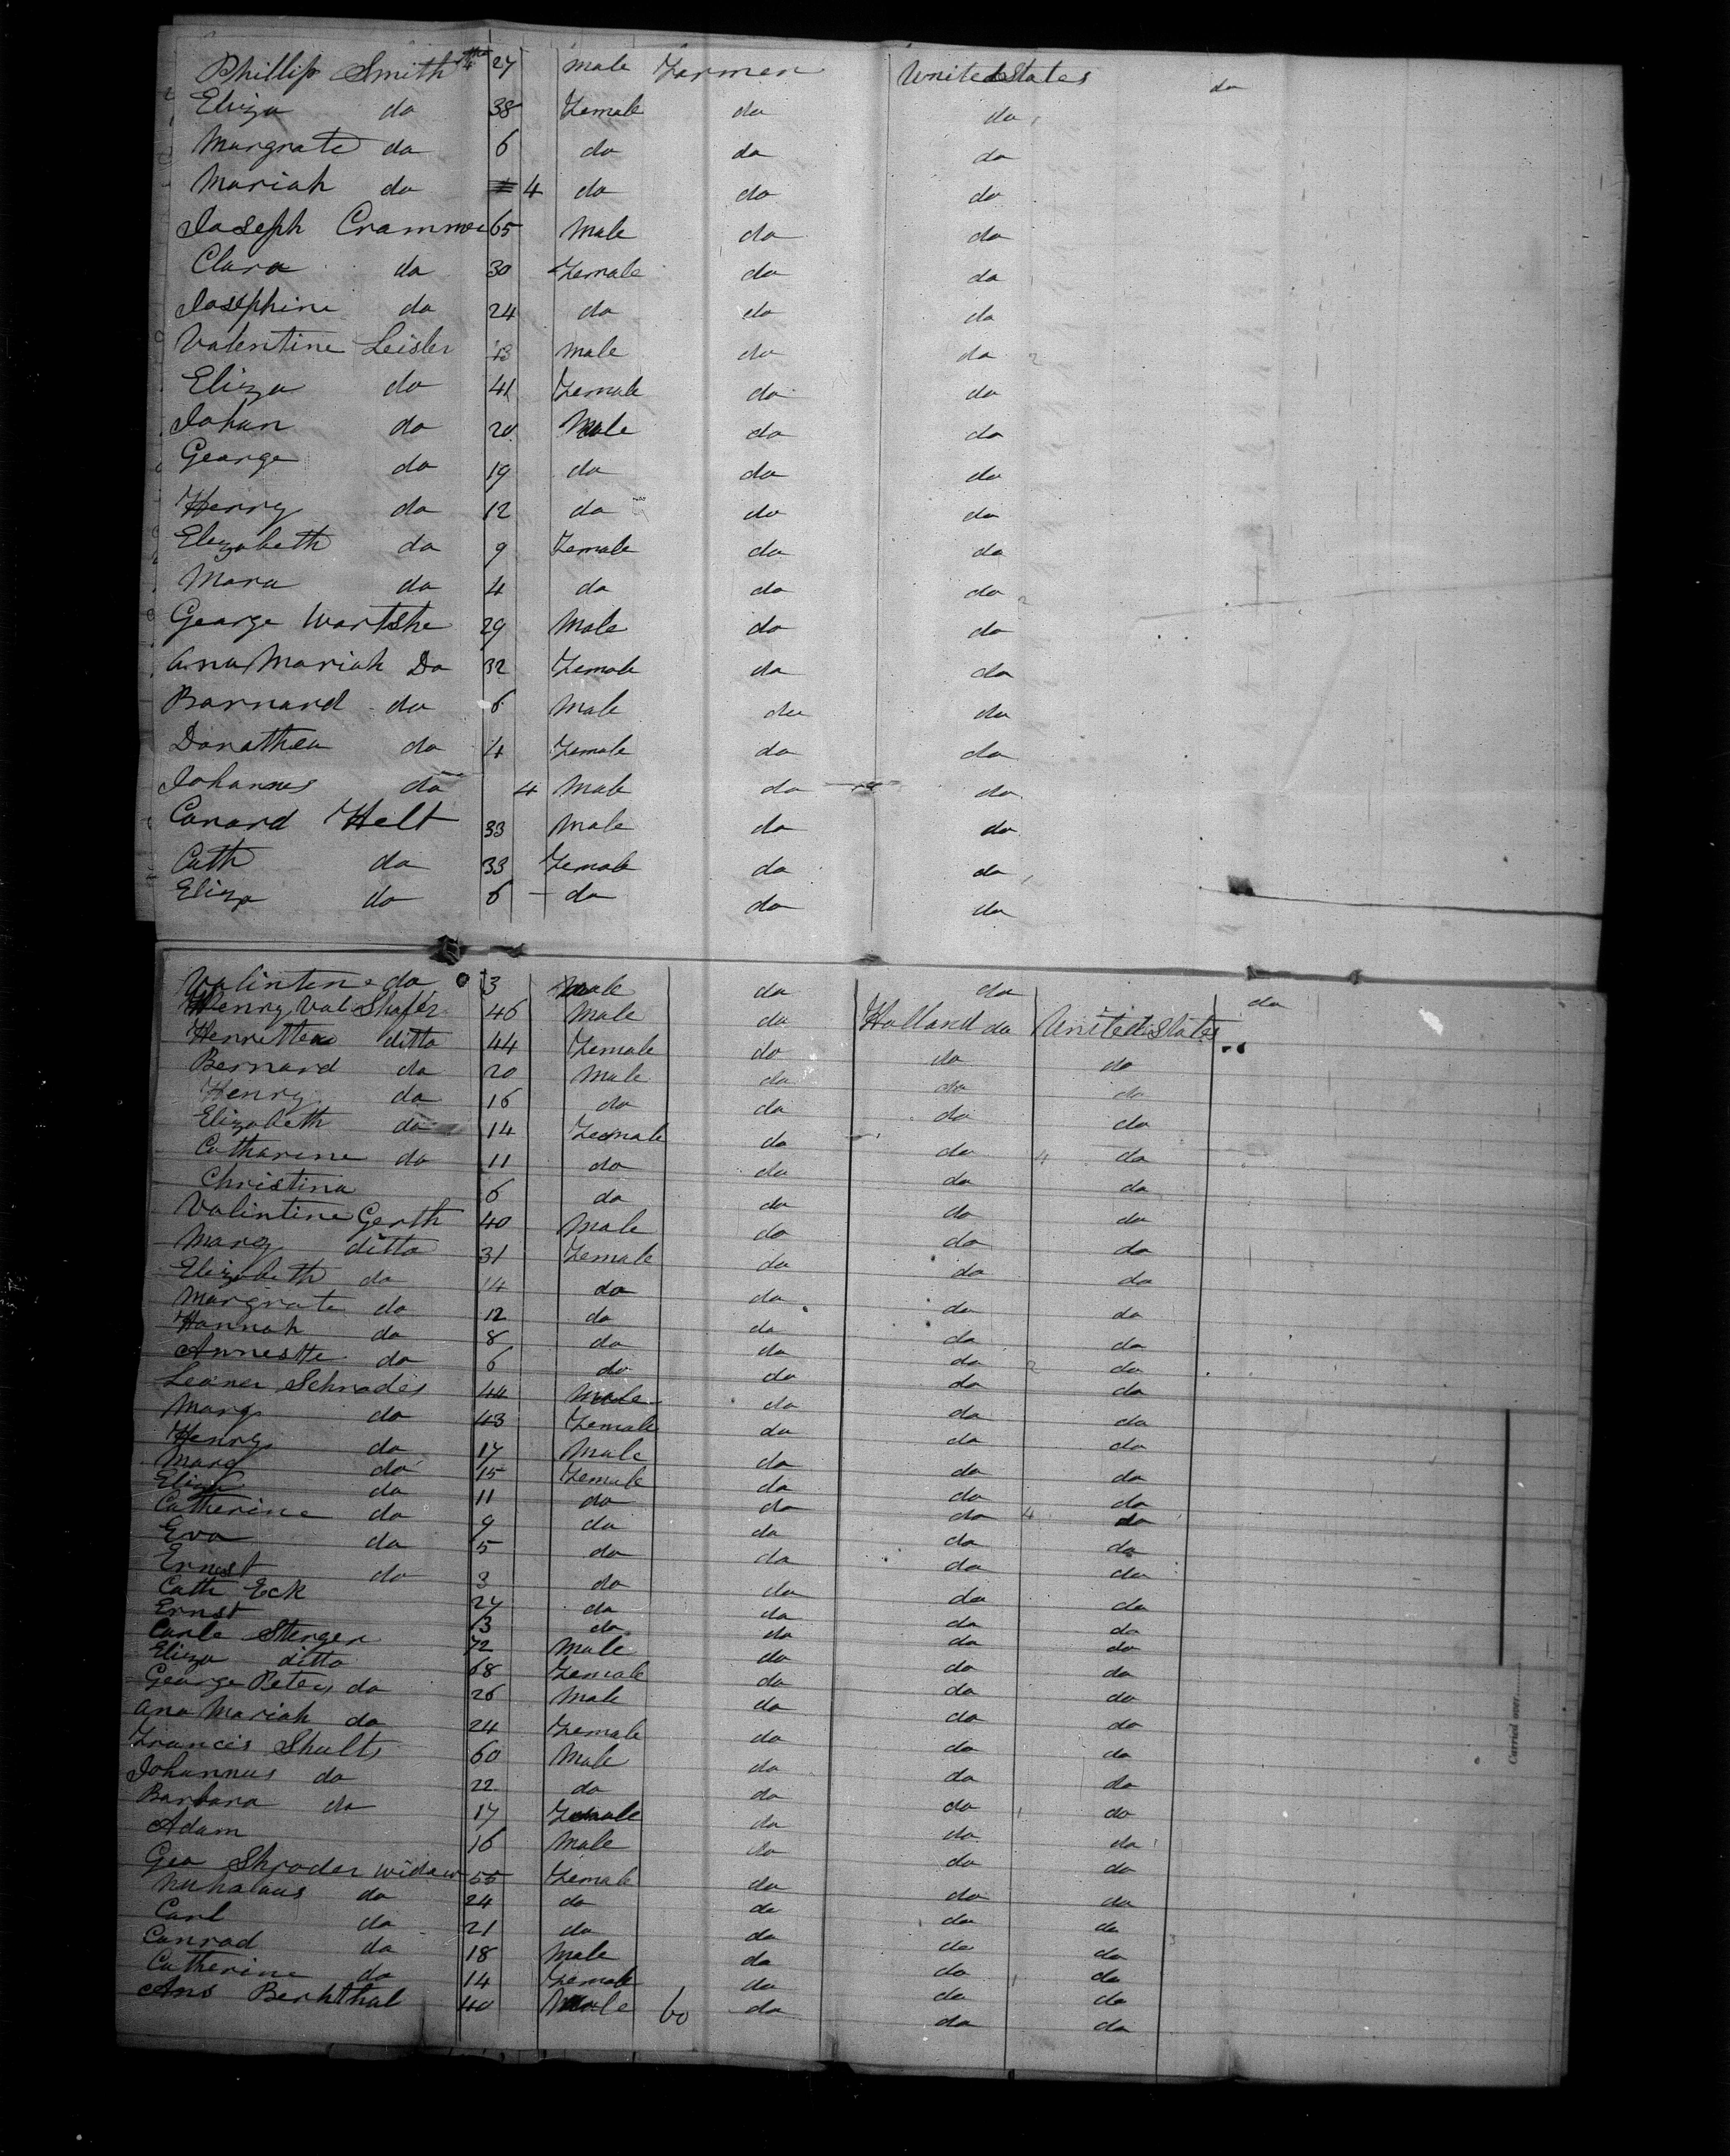 Phillip Smith 27 Male Farmer United States do
Eliza do 38 Female do do
Margrate do 6 do do do
Mariah do 4 do do do
Joseph Crammer 65 Male do do
Clara do 30 Female do do
Josephine do 24 do do do
Valentine Leisler 43 Male do do
Eliza do 41 Female do do
Johan do 20 Male do do
George do 19 do do do
Henry do 12 do do do
Elizabeth do 9 Female do do
Mara do 4 do do do
George Wartshe 29 Male do do
Ana Mariah Do 32 Female do do
Barnard do 6 Male do do
Dorathea do 4 Female do do
Johannes do 4 Male do do
Conard Helt 33 Male do do
Cath do 33 Female do do
Eliza do 6 do do do
Valintine do 3 Male do do do
Henry Val Shafer 46 Male do Holland do United States
Henrittea ditto 44 Female do do do
Bernard do 20 Male do do do
Henry do 16 do do do do
Elizabeth do 14 Female do do do
Catharine do 11 do do do do
Christina 6 do do do do
Valintine Gerth 40 Male do do do
Marg ditto 31 Female do do do
Elizabeth do 14 do do do do
Margrate do 12 do do do do
Hannah do 8 do do do do
Annestte do 6 do do do do
Leaner Schrader 44 Male do do do
Marg do 43 Female do do do
Henry do 17 Male do do do
Marg do 15 Female do do do
Eliza do 11 do do do do
Catherine do 9 do do do do
Eva do 5 do do do do
Ernest do 3 do do do do
Cath Eck 27 do do do do
Ernst 3 do do do do
Carle Sterger 72 Male do do do
Eliza ditto 68 Female do do do
George Peter do 26 Male do do do
Ana Mariah do 24 Female do do do
Francis Shults 60 Male do do do
Johannus do 22 do do do do
Barbara do 17 Female do do do
Adam 16 Male do do do
Geo Shroder widow 55 Female do do do
do 24 do do do do
Carl do 21 do do do do
Conrad do 18 Male do do do
Catherine do 14 Female do do do
Ans Berhthal 40 Male 60 do do do
Carried over